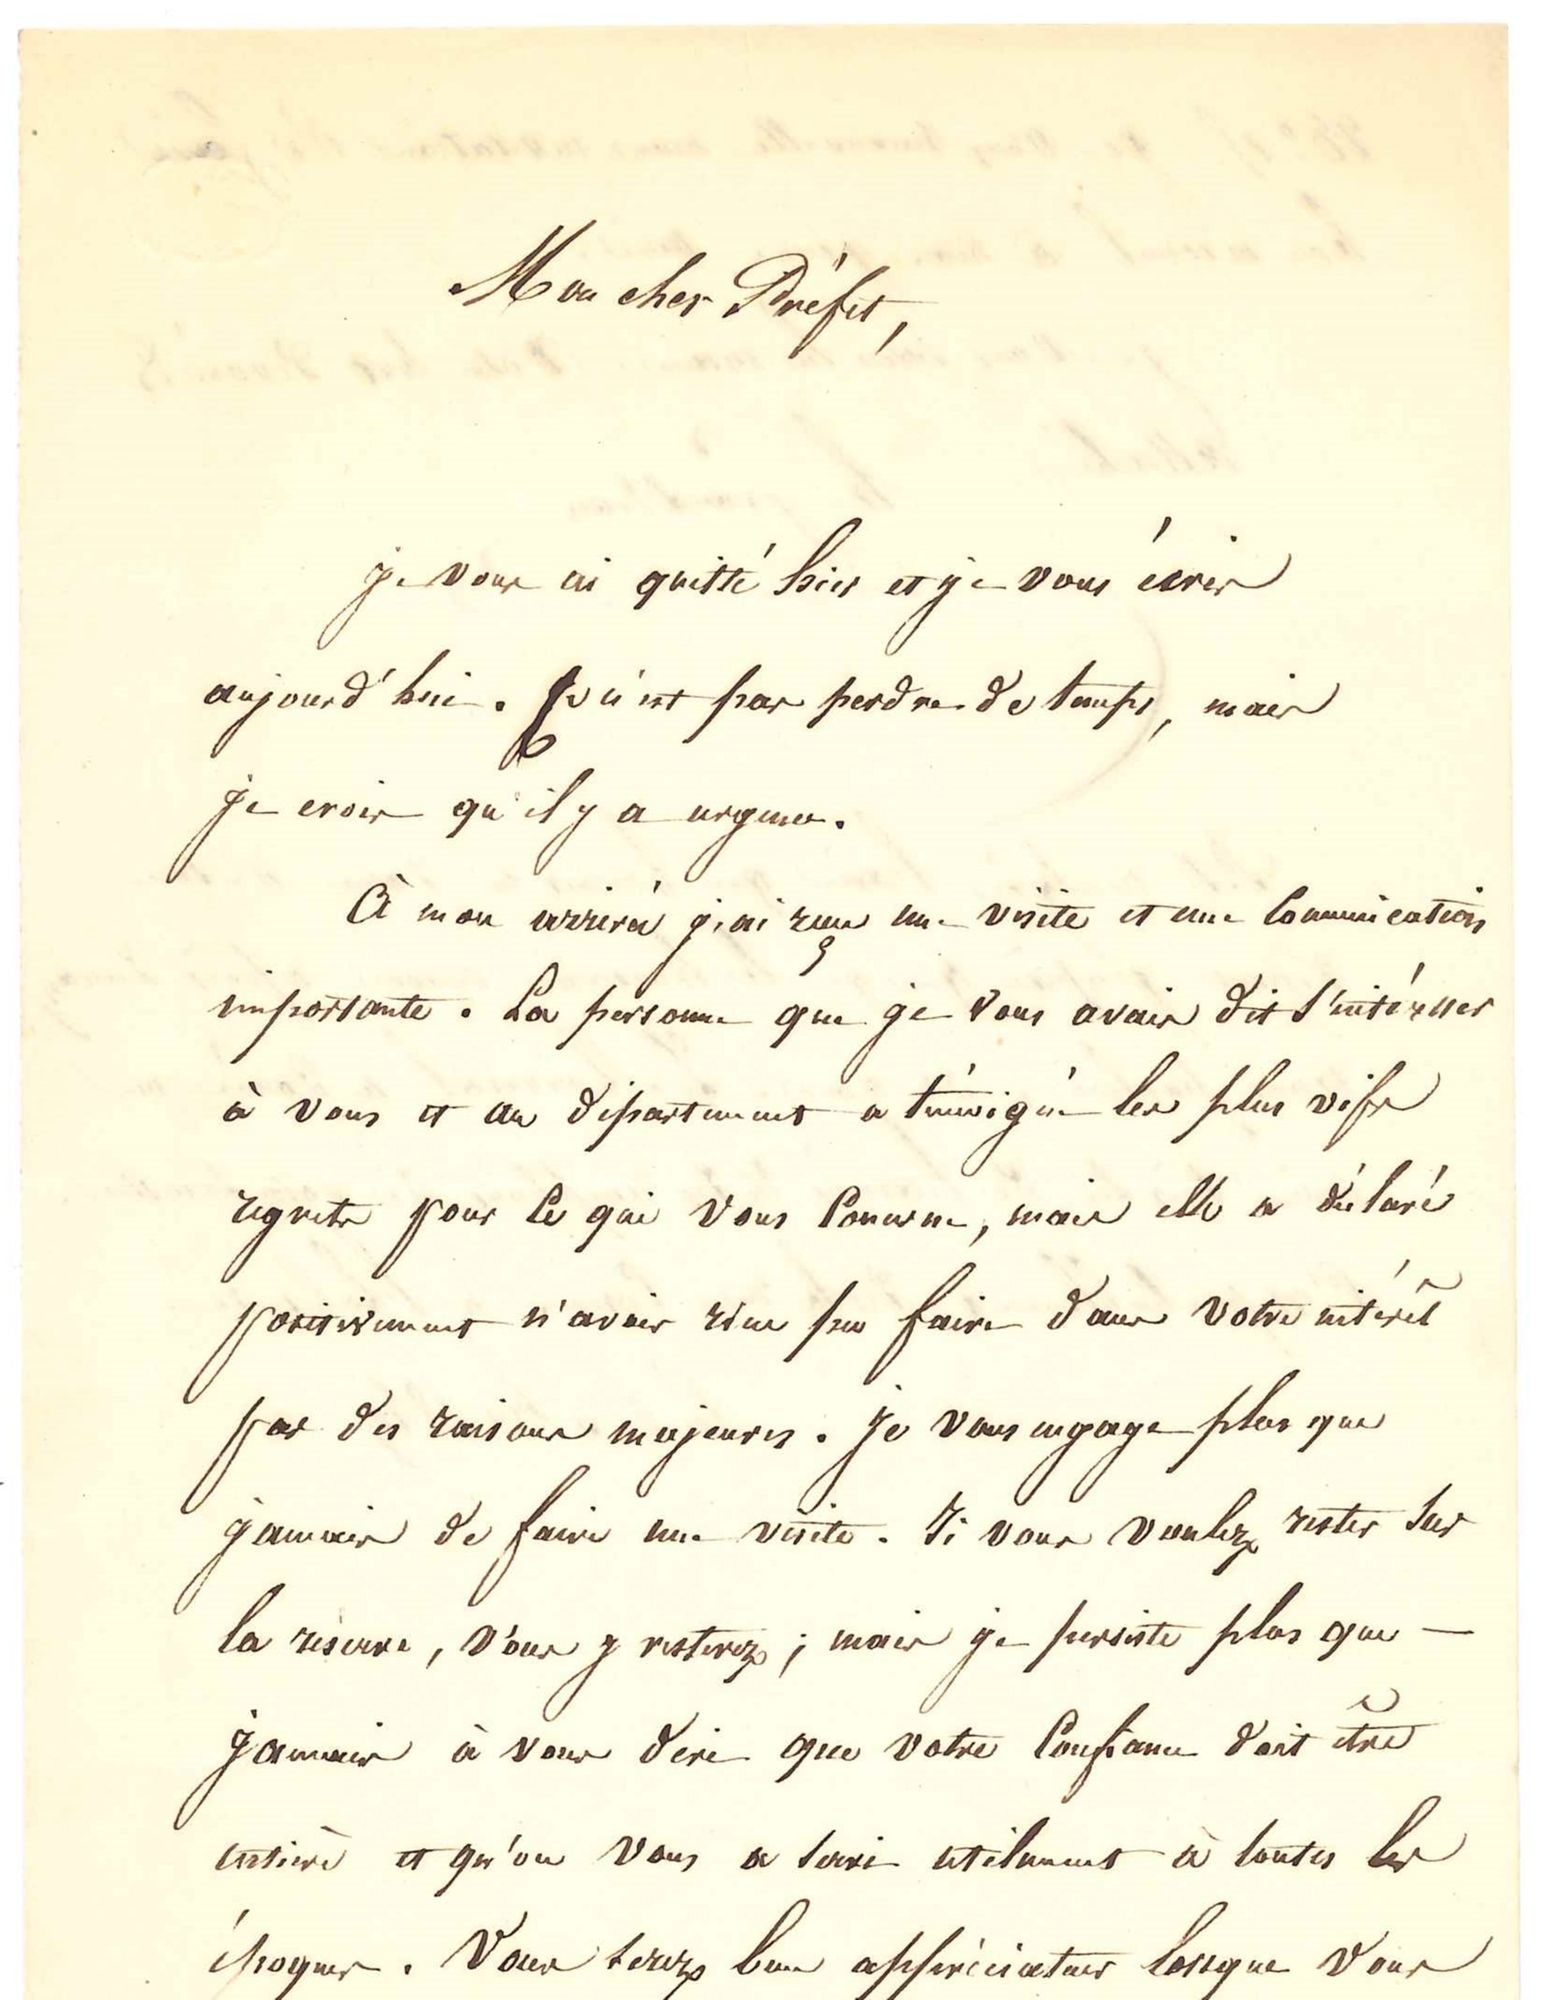 Mon cher Préfet,
je vous ai quitté hier et je vous écris
aujourd'hui. Ce n'est pas perdre de temps, mais
je crois qu'il y a urgence.
À mon arrivée j'ai reçu une visite et une communication
importante. La personne que je vous avais dit s'intéresser
à vous et au département a témoigné les plus vifs
regrets pour ce qui vous concerne, mais elle a déclaré
positivement n'avoir rien pu faire dans votre intérêt
par des raisons majeures. je vous engage plus que
jamais de faire une visite. Si vous voulez rester sur
la réserve, vous y resterez ; mais je persiste plus que —
jamais à vous dire que votre confiance doit être
entière et qu'on vous a servi utilement à toutes les
époques. Vous serez bon appréciateur lorsque vous